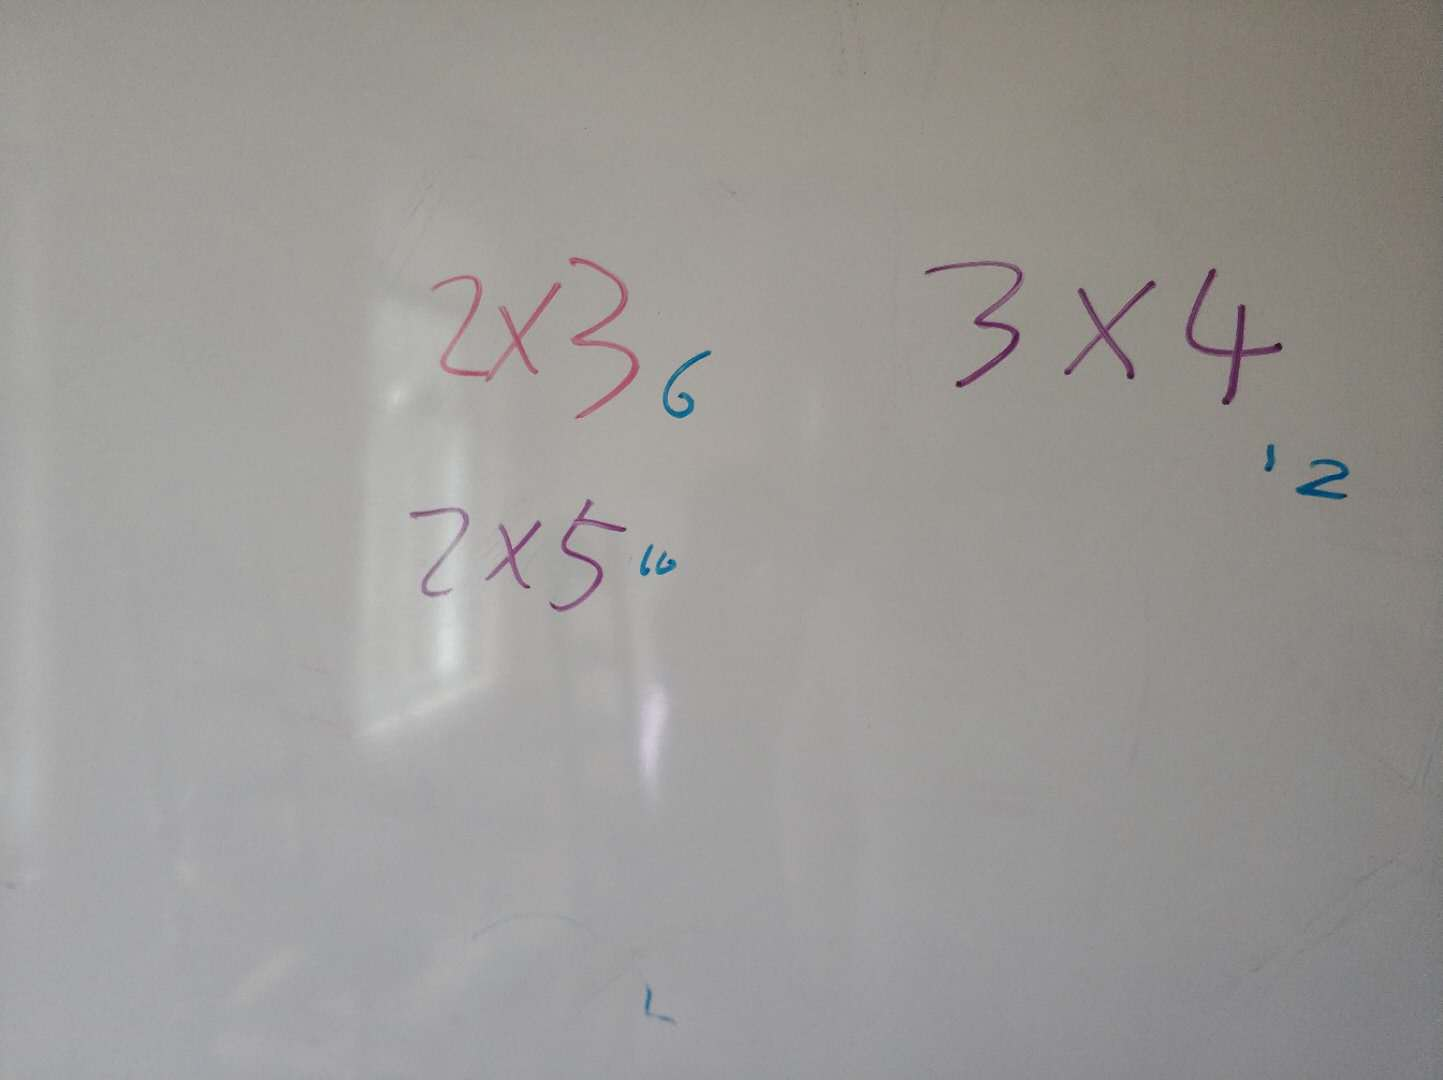 2x3 6
3x4 12
2x5 10
L